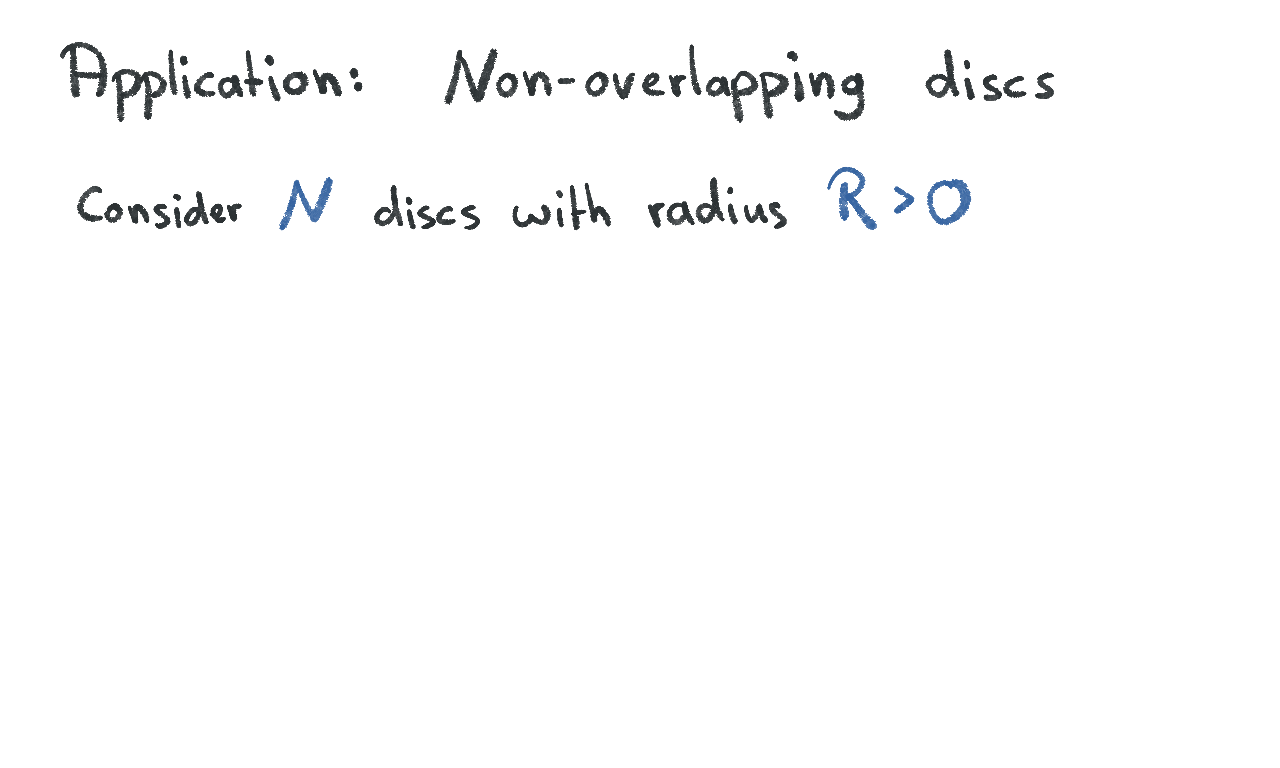 Application: Non-overlapping discs
Consider N discs with radius R > 0